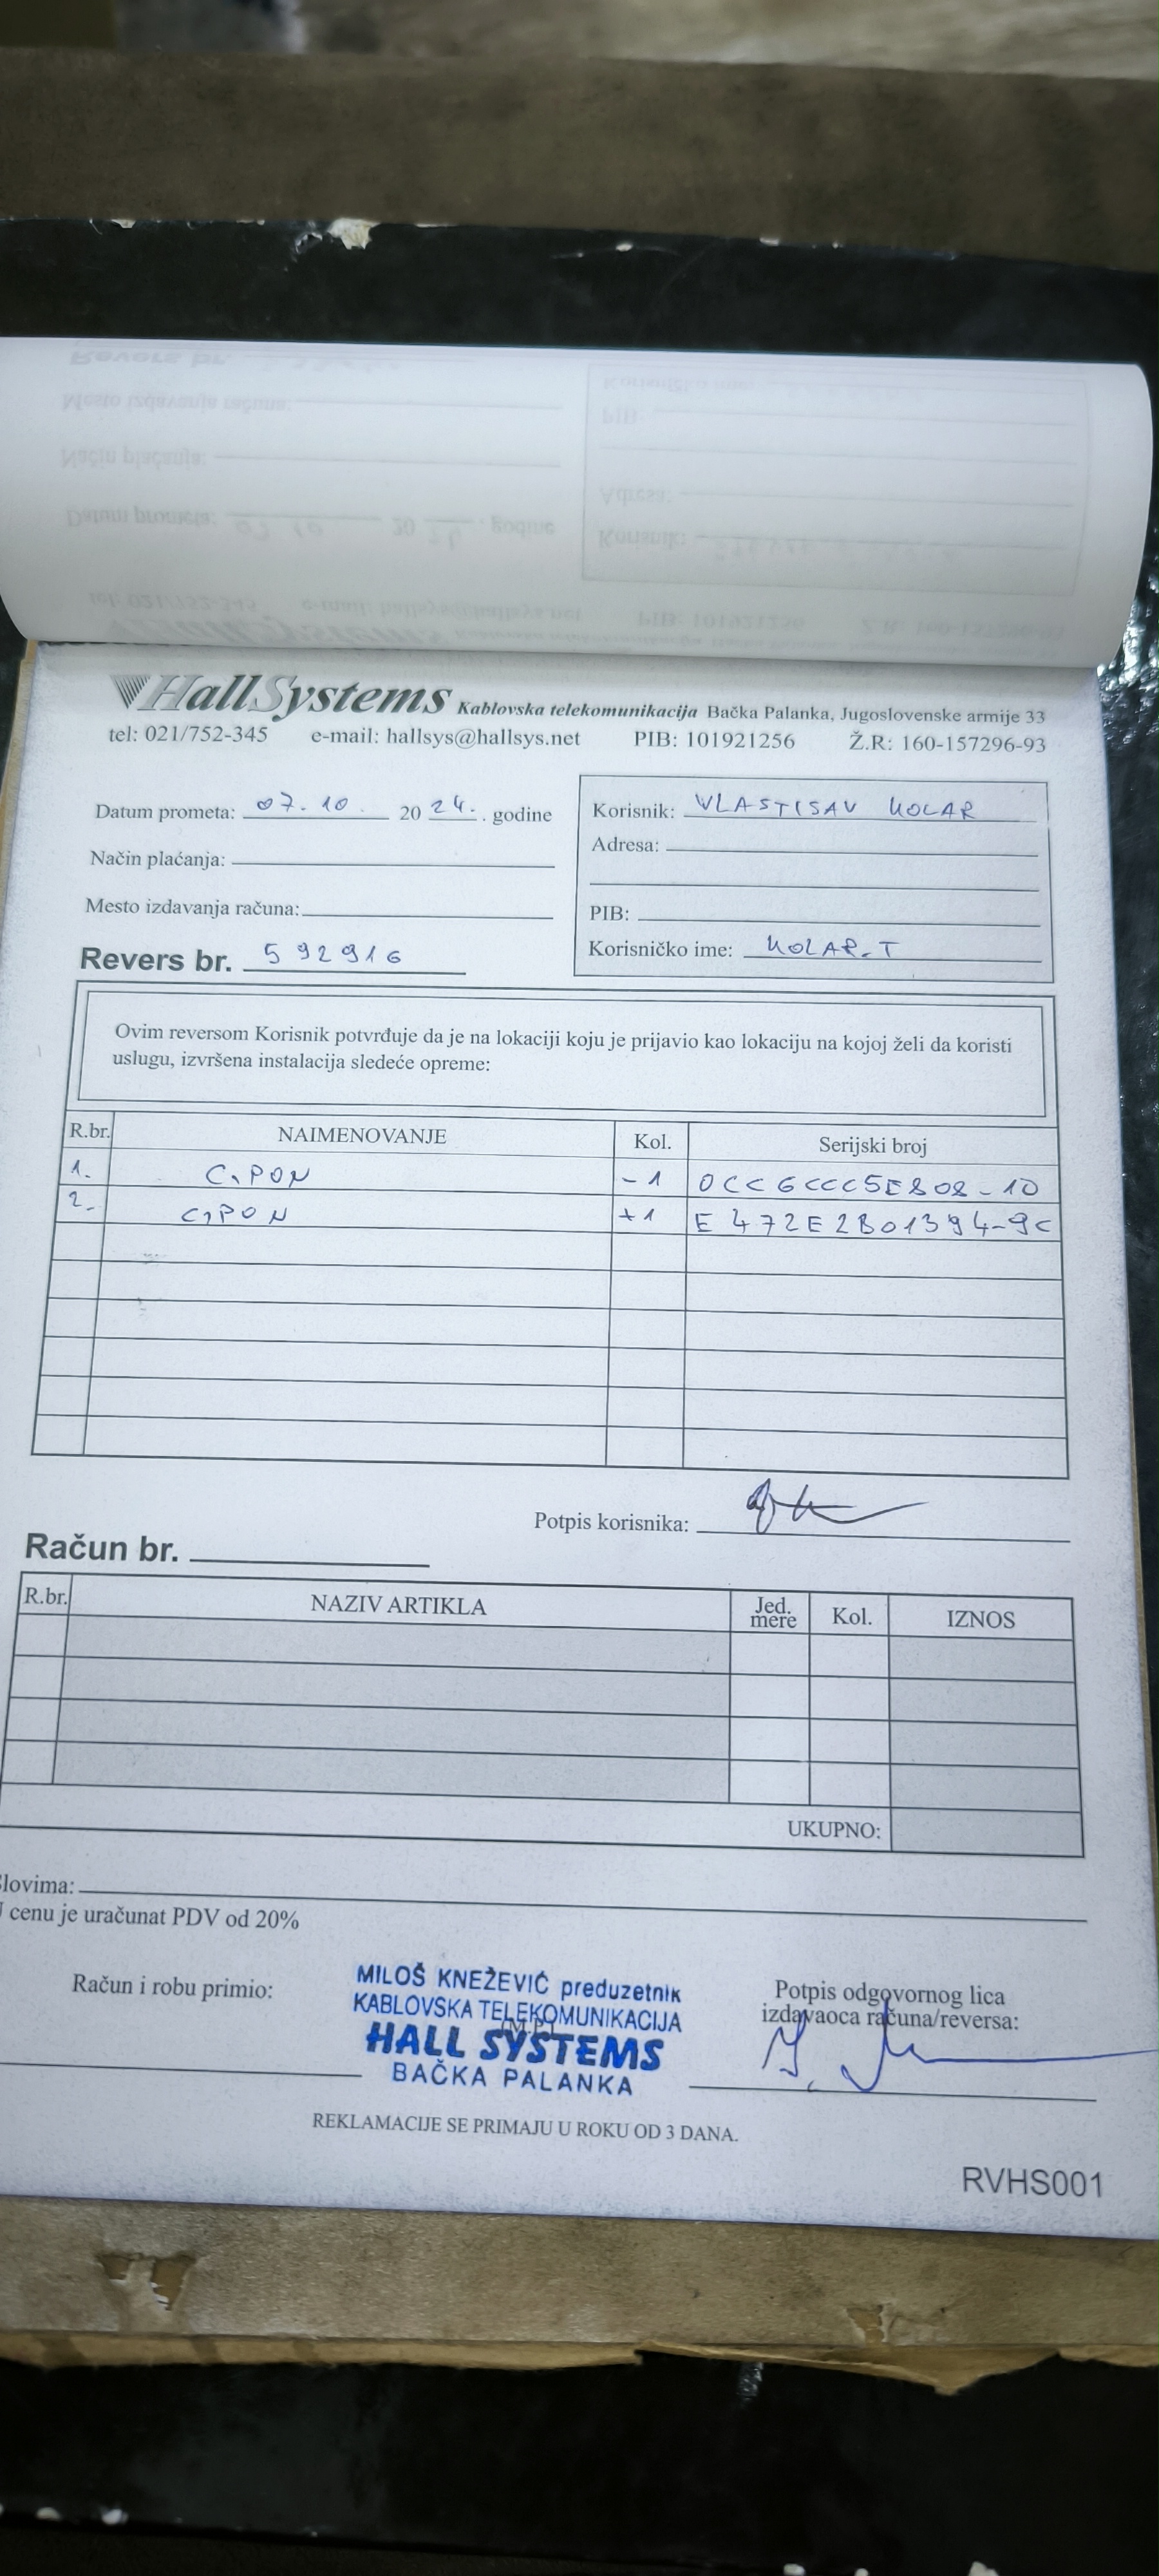 HallSystems Kablovska telekomunikacija Bačka Palanka, Jugoslovenske armije 33
tel: 021/752-345 e-mail: hallsys@hallsys.net PIB: 101921256 Ž.R: 160-157296-93
Datum prometa: 07.10. 20 24. . godine
Način plaćanja:
Mesto izdavanja računa:
Revers br. 592916
Korisnik: VLASTISAV KOLAR
Adresa:
PIB:
Korisničko ime: KOLAR.T
Ovim reversom Korisnik potvrđuje da je na lokaciji koju je prijavio kao lokaciju na kojoj želi da koristi
uslugu, izvršena instalacija sledeće opreme:
R.br. NAIMENOVANJE Kol. Serijski broj
1. GPON -1 0CC6CCC5E808-10
2. GPON +1 E472E2B01394-9C
Potpis korisnika:
Račun br.
R.br. NAZIV ARTIKLA Jed. mere Kol. IZNOS
UKUPNO:
lovima:
cenu je uračunat PDV od 20%
Račun i robu primio:
MILOŠ KNEŽEVIĆ preduzetnik
KABLOVSKA TELEKOMUNIKACIJA
(M.P.)
HALL SYSTEMS
BAČKA PALANKA
Potpis odgovornog lica
izdavaoca računa/reversa:
REKLAMACIJE SE PRIMAJU U ROKU OD 3 DANA.
RVHS001